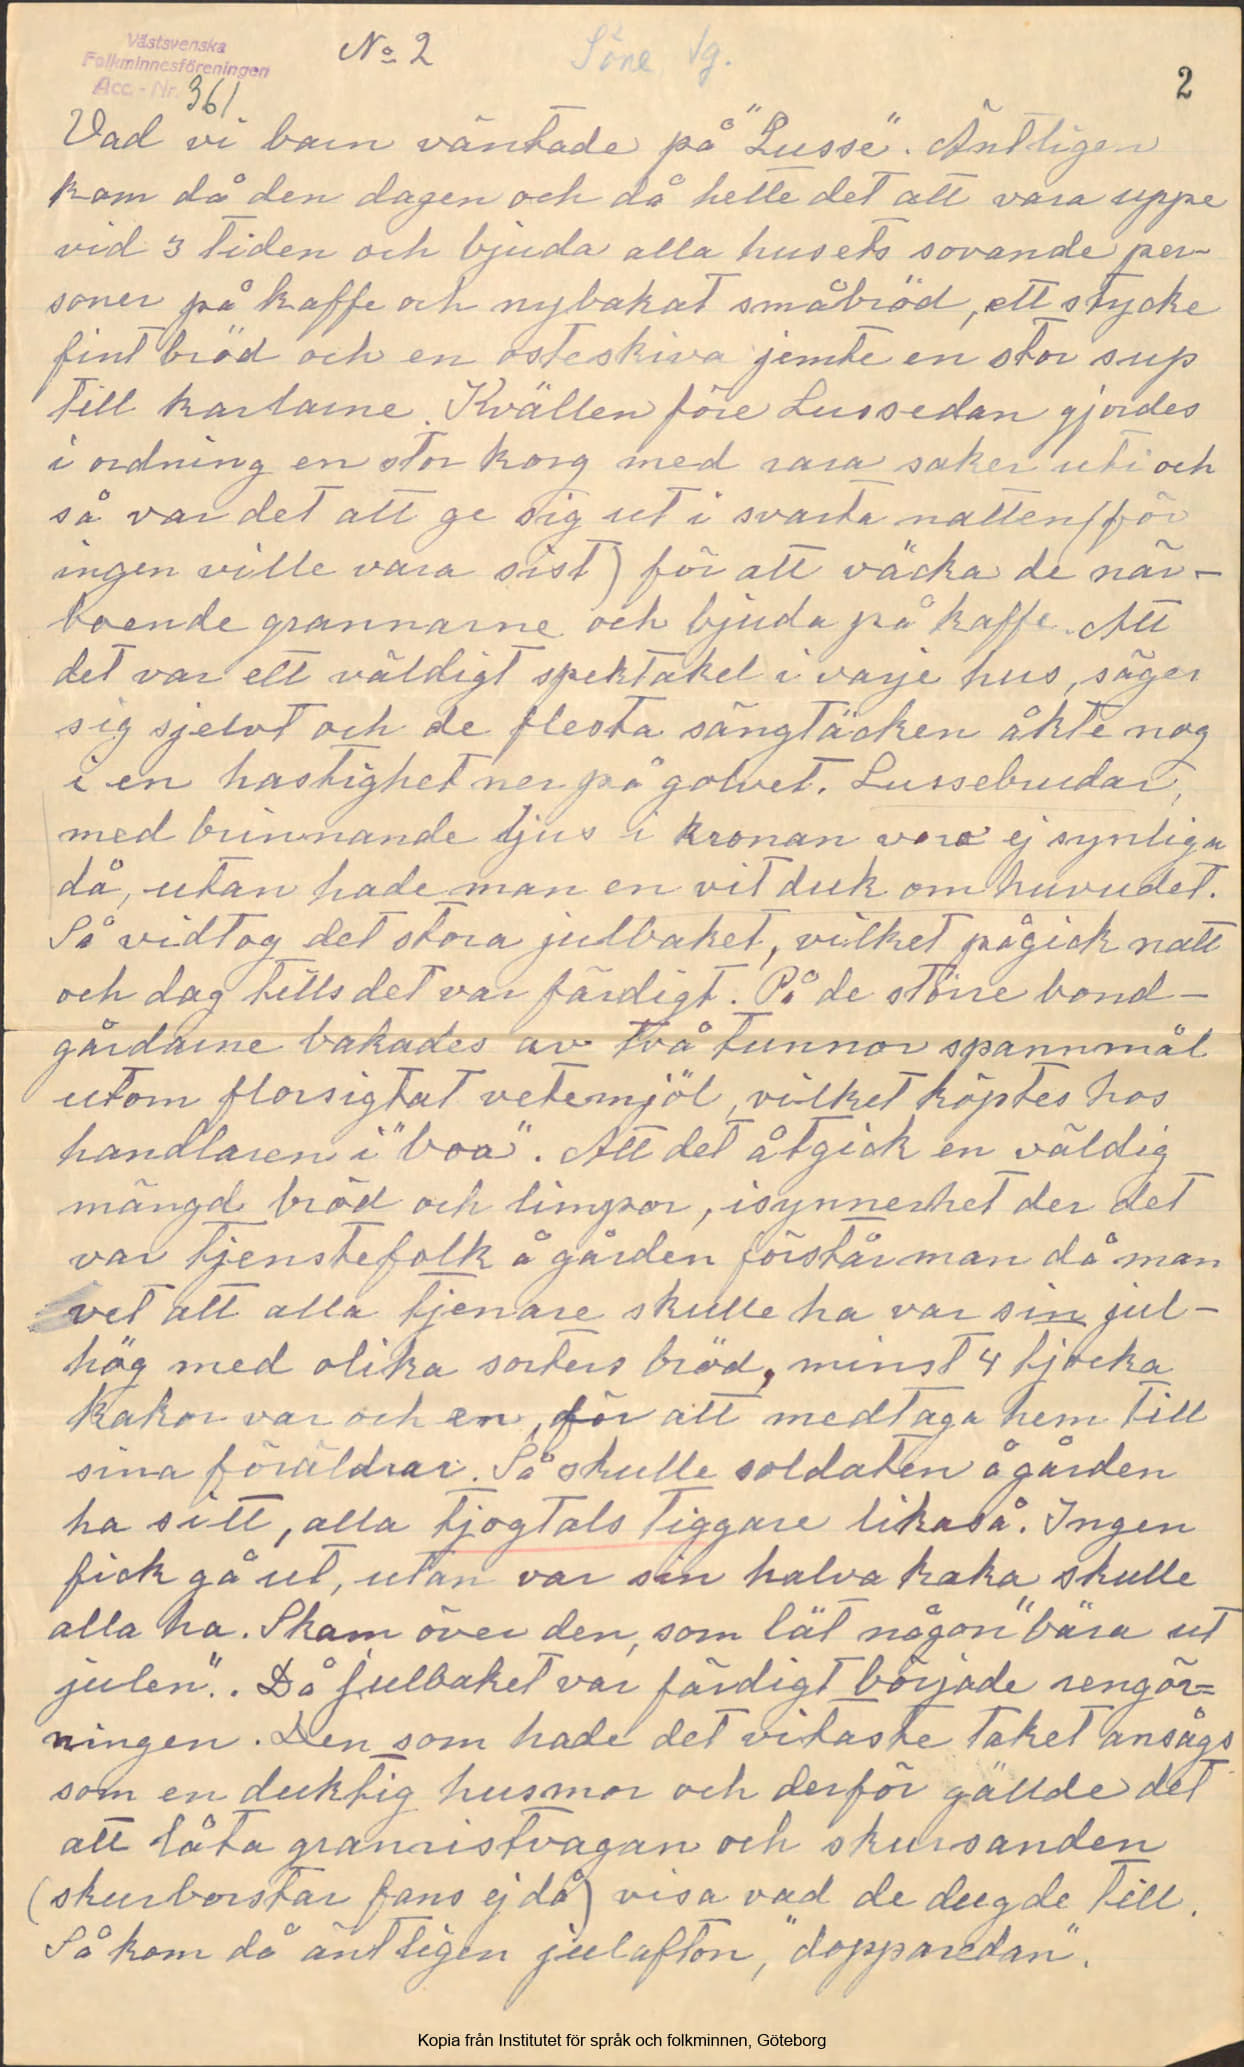 Västsvenska
Folkminnesföreningen
Acc.-Nr. 361
No 2
Söne Vg.
2
Vad vi barn väntade på "Lusse". Äntligen
kom då den dagen och då hette det att vara uppe
vid 3 tiden och bjuda alla husets sovande per-
soner på kaffe och nybakat småbröd, ett stycke
fint bröd och en osteskiva jemte en stor sup
till karlarne. Kvällen före Lussedan gjordes
i ordning en stor korg med rara saker uti och
så var det att ge sig ut i svarta natten (för
ingen ville vara sist) för att väcka de när-
boende grannarne och bjuda på kaffe. Att
det var ett väldigt spektakel i varje hus, säger
sig sjelvt och de flesta sängtäcken åkte nog
i en hastighet ner på golvet. Lussebrudar,
med brinnande ljus i kronan voro ej synliga
då, utan hade man en vit duk om huvudet.
Så vidtog det stora julbaket, vilket pågick natt
och dag tills det var färdigt. På de större bond-
gårdarne bakades av två tunnor spannmål
utom florsigtat vetemjöl, vilket köptes hos
handlaren i "boa". Att det åtgick en väldig
mängd bröd och limpor, isynnerhet der det
var tjenstefolk å gården förstår man då man
vet att alla tjenare skulle ha var sin jul-
hög med olika sorters bröd, minst 4 tjocka
kakor var och en, för att medtaga hem till
sina föräldrar. Så skulle soldaten å gården
ha sitt, alla tjogtals tiggare likaså. Ingen
fick gå ut, utan var sin halva kaka skulle
alla ha. Skam över den, som lät någon "bära ut
julen". Då julbaket var färdigt började rengör=
ningen. Den som hade det vitaste taket ansågs
som en duktig husmor och derför gällde det
att låta granristvagan och skursanden
(skurborstar fans ej då) visa vad de dugde till.
Så kom då äntligen julafton, "dopparedan".
Kopia från Institutet för språk och folkminnen, Göteborg